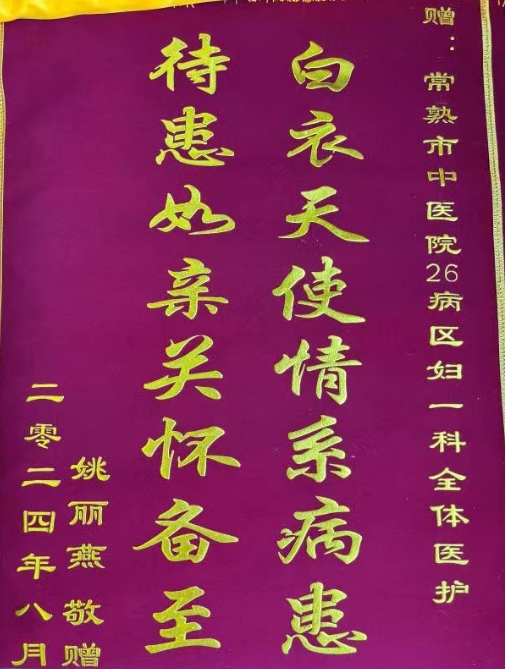 赠：常熟市中医院26病区妇一科全体医护
白衣天使情系病患
待患如亲关怀备至
姚丽燕 敬赠
二零二四年八月